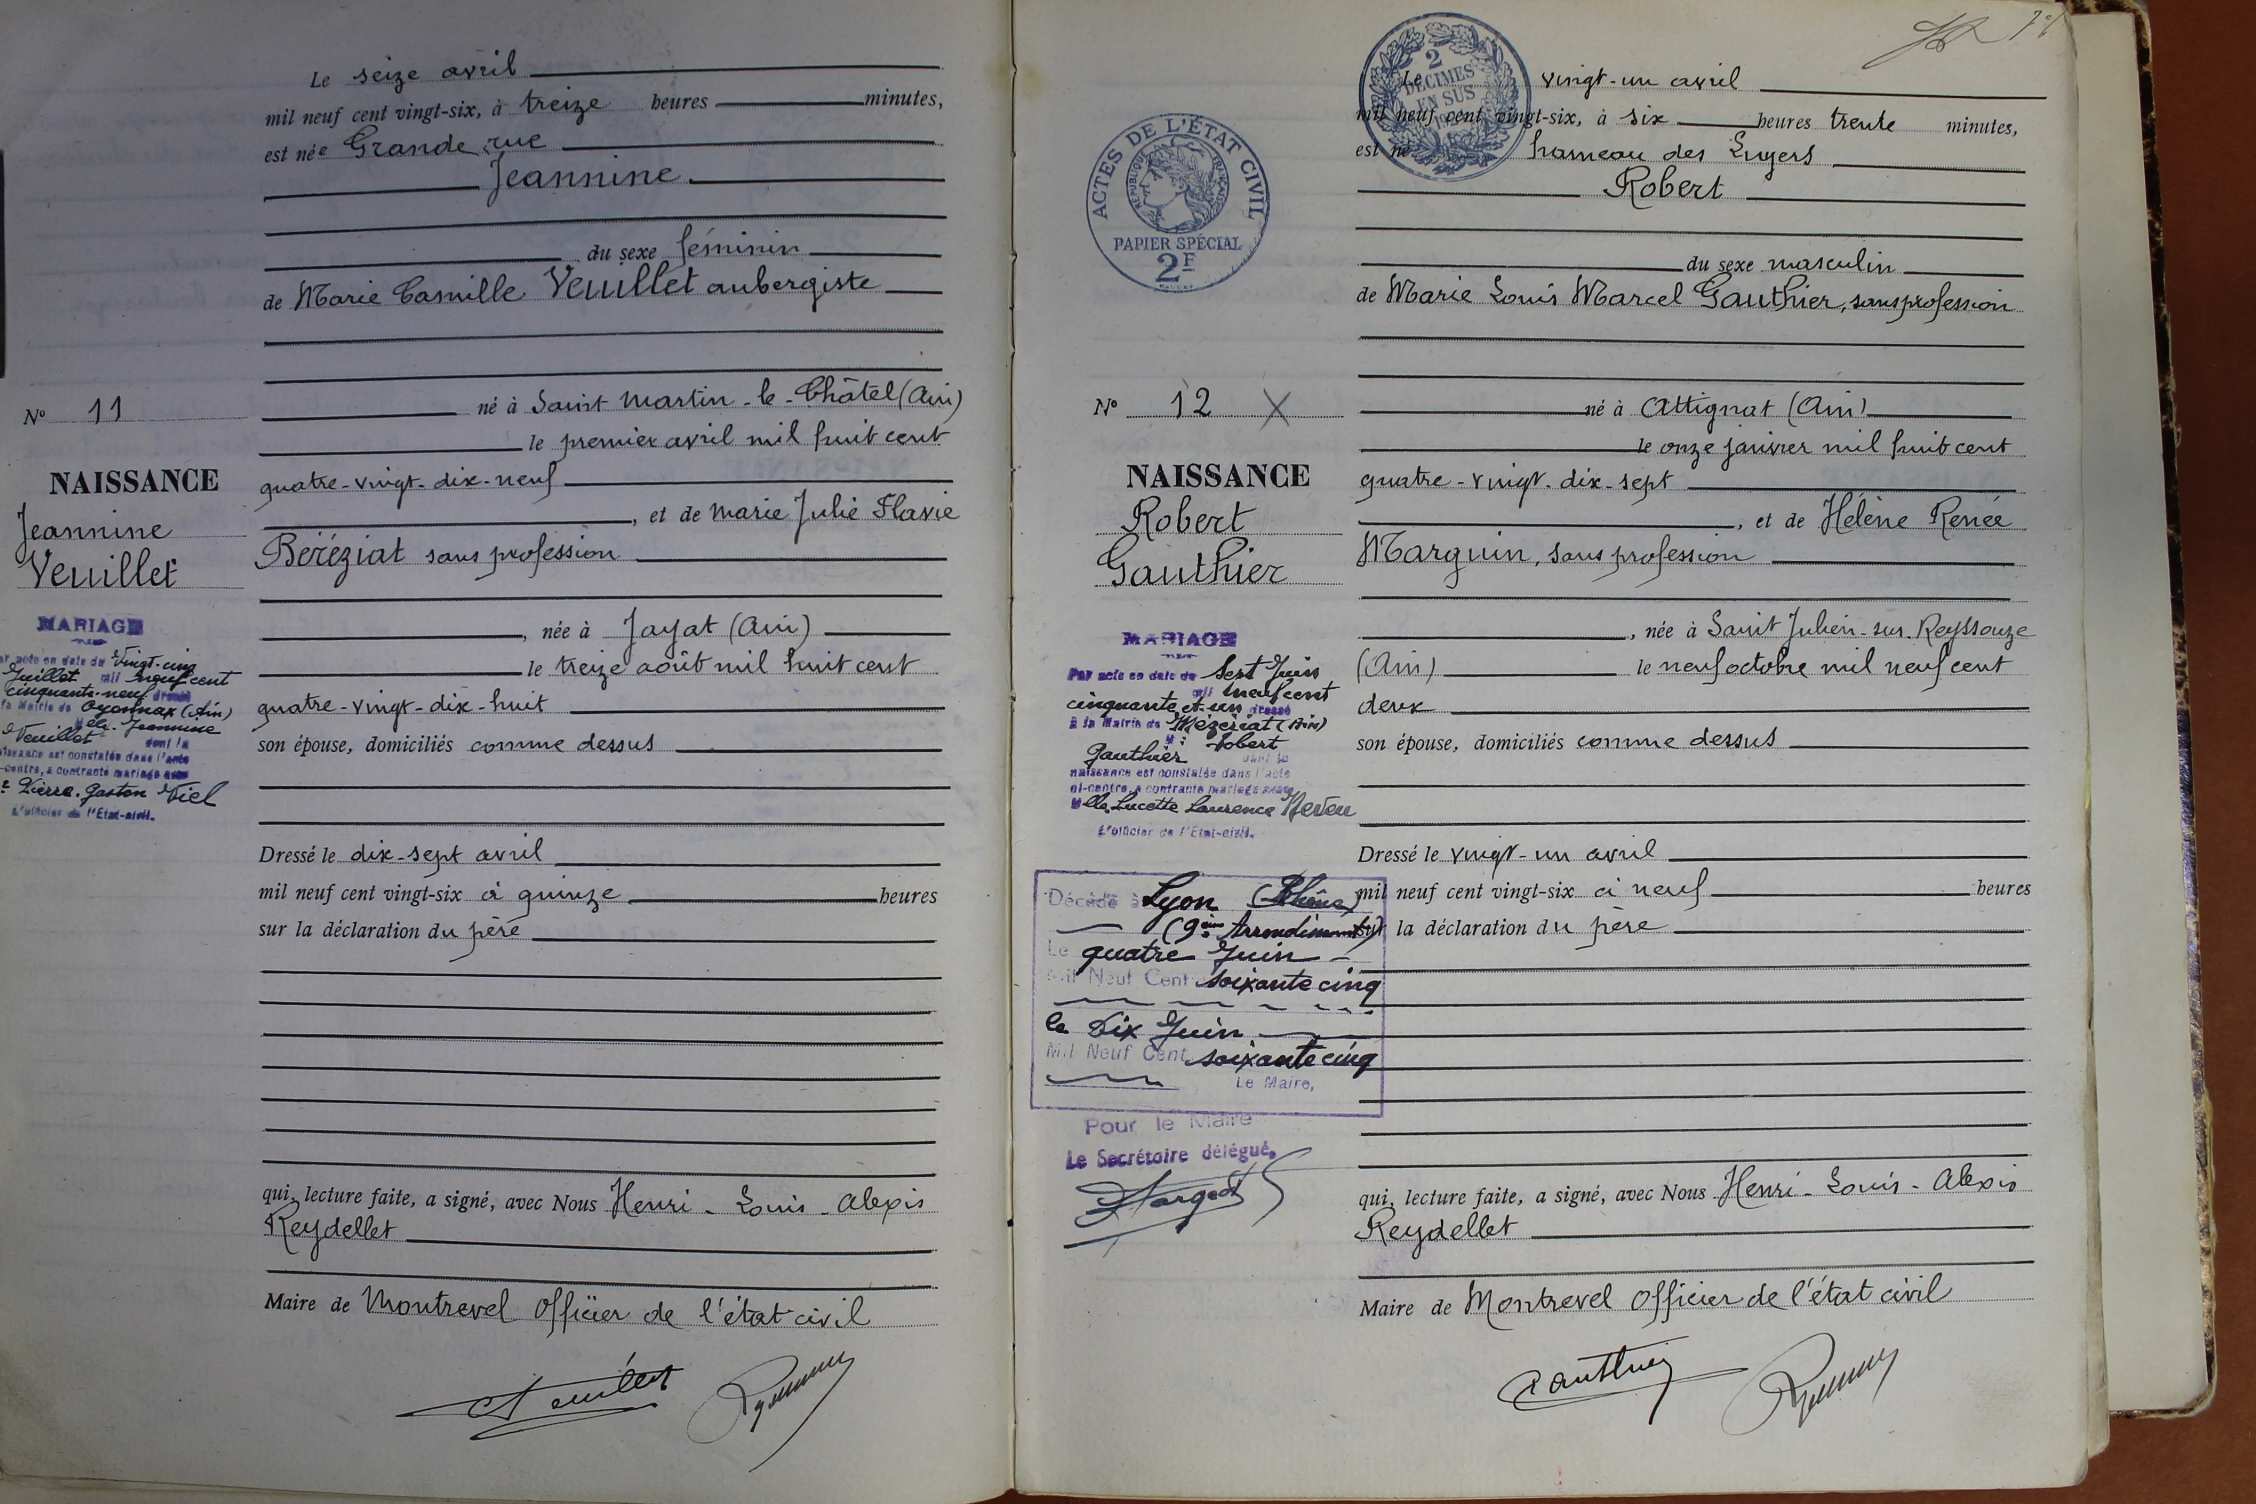 Le seize avril
mil neuf cent vingt-six, à treize heures minutes,
est née Grande rue
Jeannine
du sexe féminin
de Marie Camille Veuillet aubergiste
né à Saint Martin-le-Châtel (Ain)
le premier avril mil huit cent
quatre-vingt-dix-neuf
, et de Marie Julie Flavie
Béréziat sans profession
, née à Jayat (Ain)
le treize août mil huit cent
quatre-vingt-dix-huit
son épouse, domiciliés comme dessus
Dressé le dix-sept avril
mil neuf cent vingt-six à quinze heures
sur la déclaration du père
qui, lecture faite, a signé, avec Nous Henri-Louis-Alexis
Reydellet
Maire de Montrevel officier de l'état civil
N° 11
NAISSANCE
Jeannine
Veuillet
MARIAGE
acte en date du Vingt-cinq
Juillet mil neuf cent
cinquante-neuf dressé
la Mairie de Oyonnax (Ain)
Jeannine
Veuillet dont la
naissance est constatée dans l'acte
-contre, a contracté mariage avec
Pierre Gaston Viel
L'officier de l'Etat-civil.
ACTES DE L'ÉTAT CIVIL
RÉPUBLIQUE FRANÇAISE
PAPIER SPÉCIAL
2F
2
DÉCIMES
EN SUS
N° 12 X
NAISSANCE
Robert
Gauthier
MARIAGE
Par acte en date du Sept Juin
mil neuf cent
cinquante et un dressé
à la Mairie de Mézériat (Ain)
Mr Robert
Gauthier dont la
naissance est constatée dans l'acte
ci-contre, a contracté mariage avec
Melle Lucette Laurence
L'officier de l'Etat-civil.
Décédé à Lyon (Rhône)
(9ème Arrondissement)
Le quatre Juin
Mil Neuf Cent soixante cinq
le Dix Juin
Mil Neuf Cent soixante cinq
Le Maire,
Pour le Maire
Le Secrétaire délégué,
Le vingt-un avril
mil neuf cent vingt-six, à six heures trente minutes,
est né hameau des Lugers
Robert
du sexe masculin
de Marie Louis Marcel Gauthier, sans profession
né à Attignat (Ain)
le onze janvier mil huit cent
quatre-vingt-dix-sept
, et de Hélène Renée
Marguin, sans profession
, née à Saint Julien-sur-Reyssouze
(Ain) le neuf octobre mil neuf cent
deux
son épouse, domiciliés comme dessus
Dressé le vingt-un avril
mil neuf cent vingt-six à neuf heures
sur la déclaration du père
qui, lecture faite, a signé, avec Nous Henri-Louis-Alexis
Reydellet
Maire de Montrevel officier de l'état civil
Gauthier